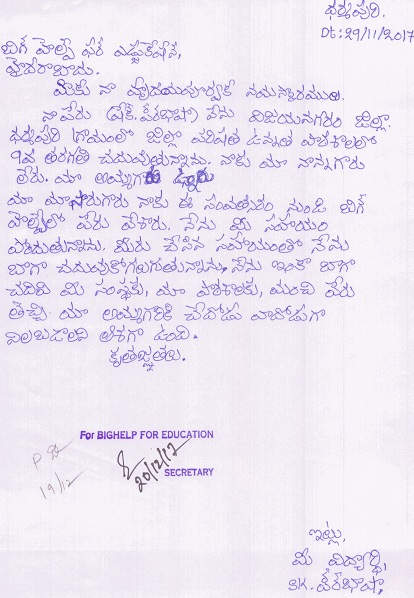 ధర్మపురి.
Dt: 29/11/2017
బిగ్ హెల్ప్ ఫర్ ఎడ్యుకేషన్,
హైదరాబాదు.
మీకు నా హృదయపూర్వక నమస్కారములు.
నా పేరు (షేక్. పీరుభాషా) నేను విజయనగరం జిల్లా
ధర్మపురి గ్రామంలో జిల్లా పరిషత్ ఉన్నత పాఠశాలలో
9వ తరగతి చదువుతున్నాను. నాకు మా నాన్నగారు
లేరు. మా అమ్మగారు ఉన్నారు
మా మాస్టారుగారు నాకు ఈ సంవత్సరం నుండి బిగ్
హెల్ప్‌లో పేరు వేశారు. నేను మీ సహాయం
పొందుతున్నాను. మీరు చేసిన సహాయంతో నేను
బాగా చదువుకోగలుగుతున్నాను, నేను ఇంకా బాగా
చదివి మీ సంస్థకు, మా పాఠశాలకు, మంచి పేరు
తెచ్చి మా అమ్మగారికి చేదోడు వాదోడుగా
నిలబడాలని ఆశగా ఉంది.
కృతజ్ఞతలు.
For BIGHELP FOR EDUCATION
20/12/17
SECRETARY
19/12
ఇట్లు,
మీ విద్యార్థి,
SK. పీరుభాషా,